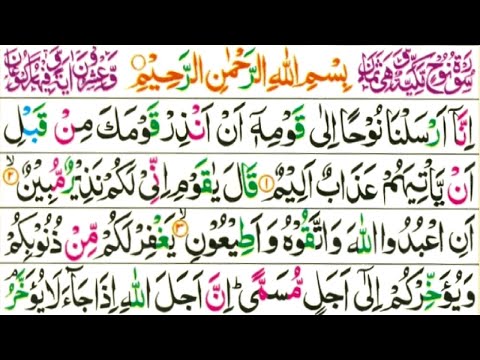 سورة نوح مكية وهي ثمان بسم الله الرحمن الرحيم ۝ وعشرون اية وفيها ركوعان
اِنَّاۤ اَرْسَلْنَا نُوْحًا اِلٰى قَوْمِهٖۤ اَنْ اَنْذِرْ قَوْمَكَ مِنْ قَبْلِ
اَنْ يَّاْتِيَهُمْ عَذَابٌ اَلِيْمٌ ۝۱ قَالَ يٰقَوْمِ اِنِّىْ لَكُمْ نَذِيْرٌ مُّبِيْنٌ ۝۲ۙ
اَنِ اعْبُدُوا اللّٰهَ وَاتَّقُوْهُ وَاَطِيْعُوْنِ ۝۳ۙ يَغْفِرْ لَكُمْ مِّنْ ذُنُوْبِكُمْ
وَيُؤَخِّرْكُمْ اِلٰۤى اَجَلٍ مُّسَمًّى ؕ اِنَّ اَجَلَ اللّٰهِ اِذَا جَآءَ لَا يُؤَخَّرُ ۘ